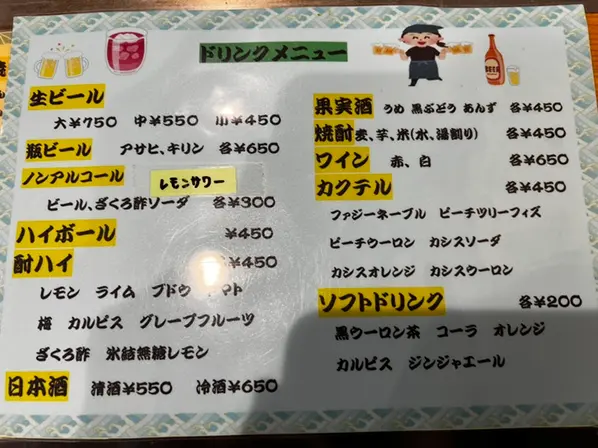 ドリンクメニュー
生ビール
大¥750 中¥550 小¥450
瓶ビール アサヒ、キリン 各¥650
ノンアルコール
レモンサワー
ビール、ざくろ酢ソーダ 各¥300
ハイボール ¥450
酎ハイ ¥450
レモン ライム ブドウ トマト
梅 カルピス グレープフルーツ
ざくろ酢 氷結無糖レモン
日本酒 清酒¥550 冷酒¥650
果実酒 うめ 黒ぶどう あんず 各¥450
焼酎 麦、芋、米(水、湯割り) 各¥450
ワイン 赤、白 各¥650
カクテル 各¥450
ファジーネーブル ピーチツリーフィズ
ピーチウーロン カシスソーダ
カシスオレンジ カシスウーロン
ソフトドリンク 各¥200
黒ウーロン茶 コーラ オレンジ
カルピス ジンジャエール
BEER